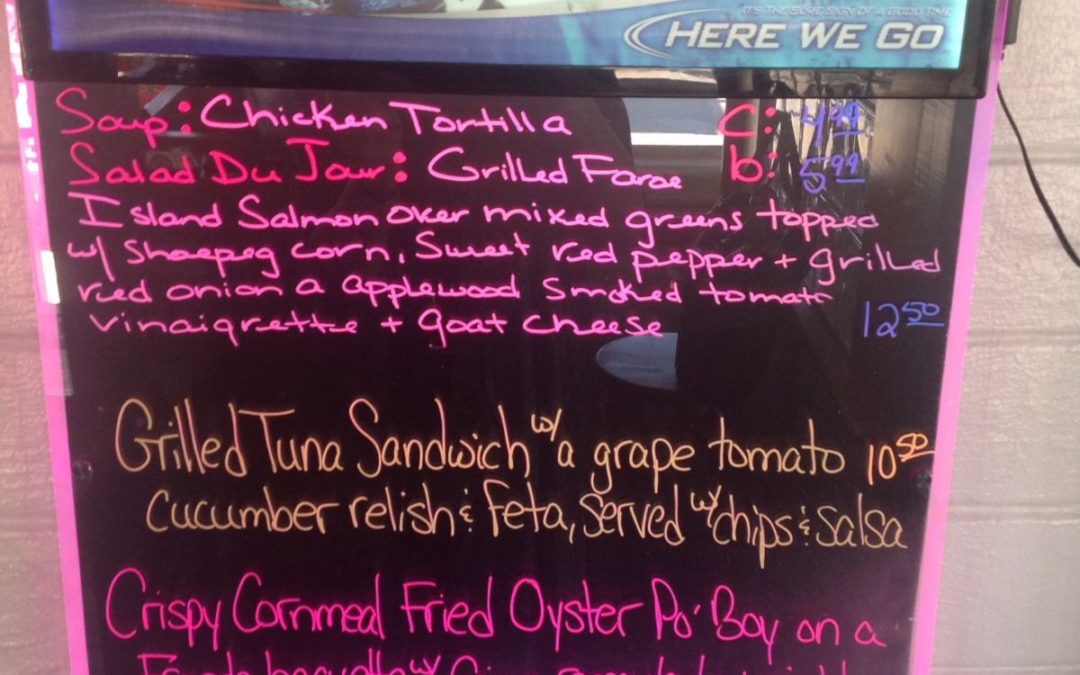 IT'S THE SURE SIGN OF A GOOD TIME
HERE WE GO
Soup: Chicken Tortilla C: 4.99
Salad Du Jour: Grilled Faroe b: 5.99
Island Salmon over mixed greens topped
w/ Shoepeg corn, Sweet red pepper + grilled
red onion a applewood smoked tomato
vinaigrette + goat cheese 12.50
Grilled Tuna Sandwich w/ a grape tomato 10.50
Cucumber relish & Feta, Served w/ chips & Salsa
Crispy Cornmeal Fried Oyster Po' Boy on a